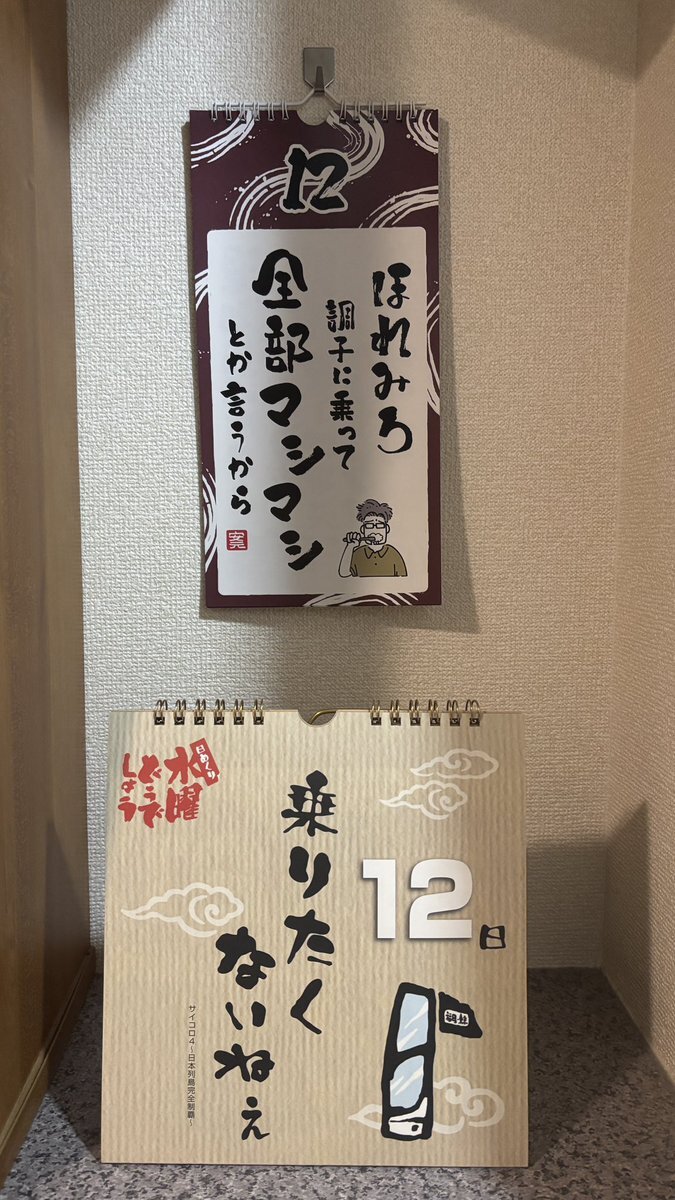 12
ほれみろ
調子に乗って
全部マシマシ
とか言うから
日めくり
水曜
どうで
しょう
12日
乗りたく
ないねぇ
サイコロ4～日本列島完全制覇～